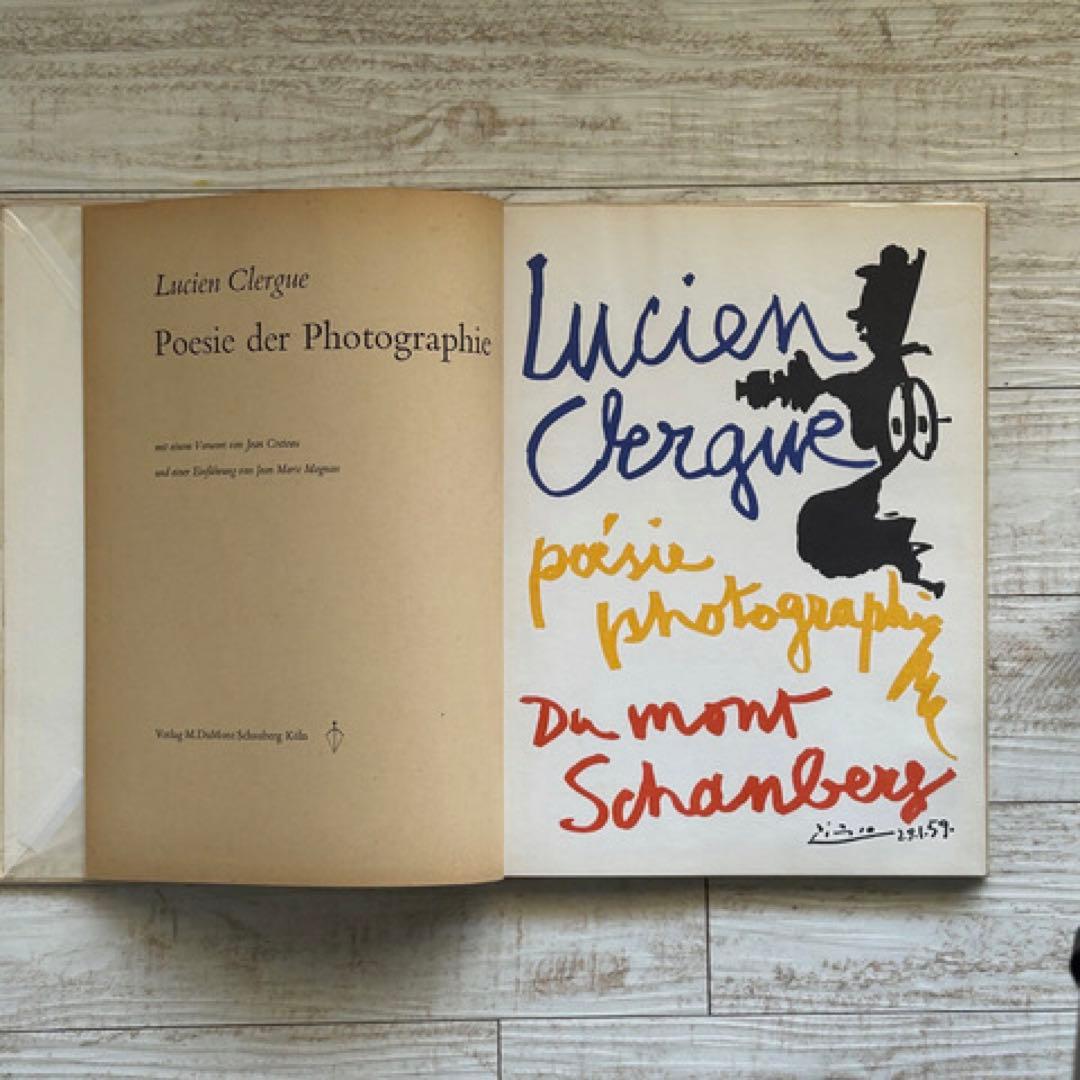 Lucien Clergue
Poesie der Photographie
mit einem Vorwort von Jean Cocteau
und einer Einführung von Jean Marie Magnan
Verlag M.DuMont Schauberg Köln
Lucien
Clergue
poésie
photographique
Du mont
Schauberg
Picasso 29.1.59.